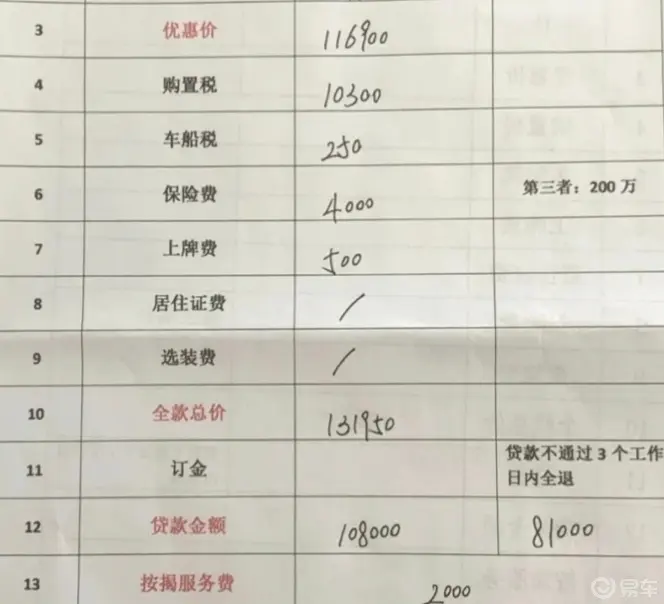 3 优惠价 116900
4 购置税 10300
5 车船税 250
6 保险费 4000 第三者：200 万
7 上牌费 500
8 居住证费 /
9 选装费 /
10 全款总价 131950
11 订金 贷款不通过 3 个工作
日内全退
12 贷款金额 108000 81000
13 按揭服务费 2000
易车